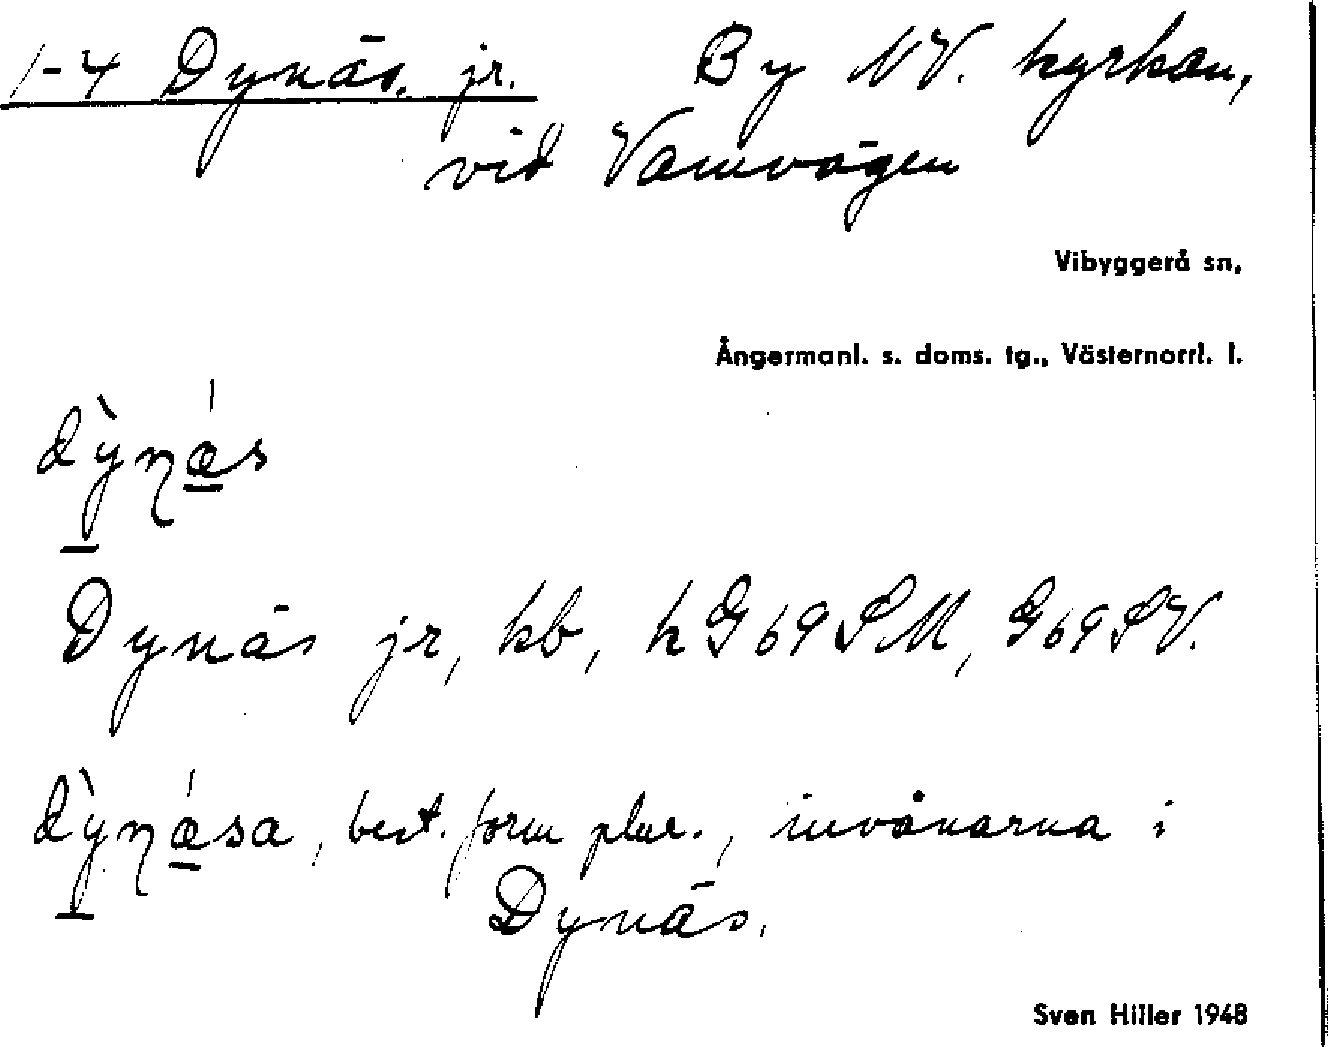 1-4 Dynäs, jr. By NV. kyrkan,
vid Vamvägen
Vibyggerå sn,
Ångermanl. s. doms. tg., Västernorrl. l.
dỳnæ̲s
Dynäs jr, kb, k G69SM, G69SV.
dỳnæ̲sa, best. form plur., invånarna i
Dynäs.
Sven Hiller 1948